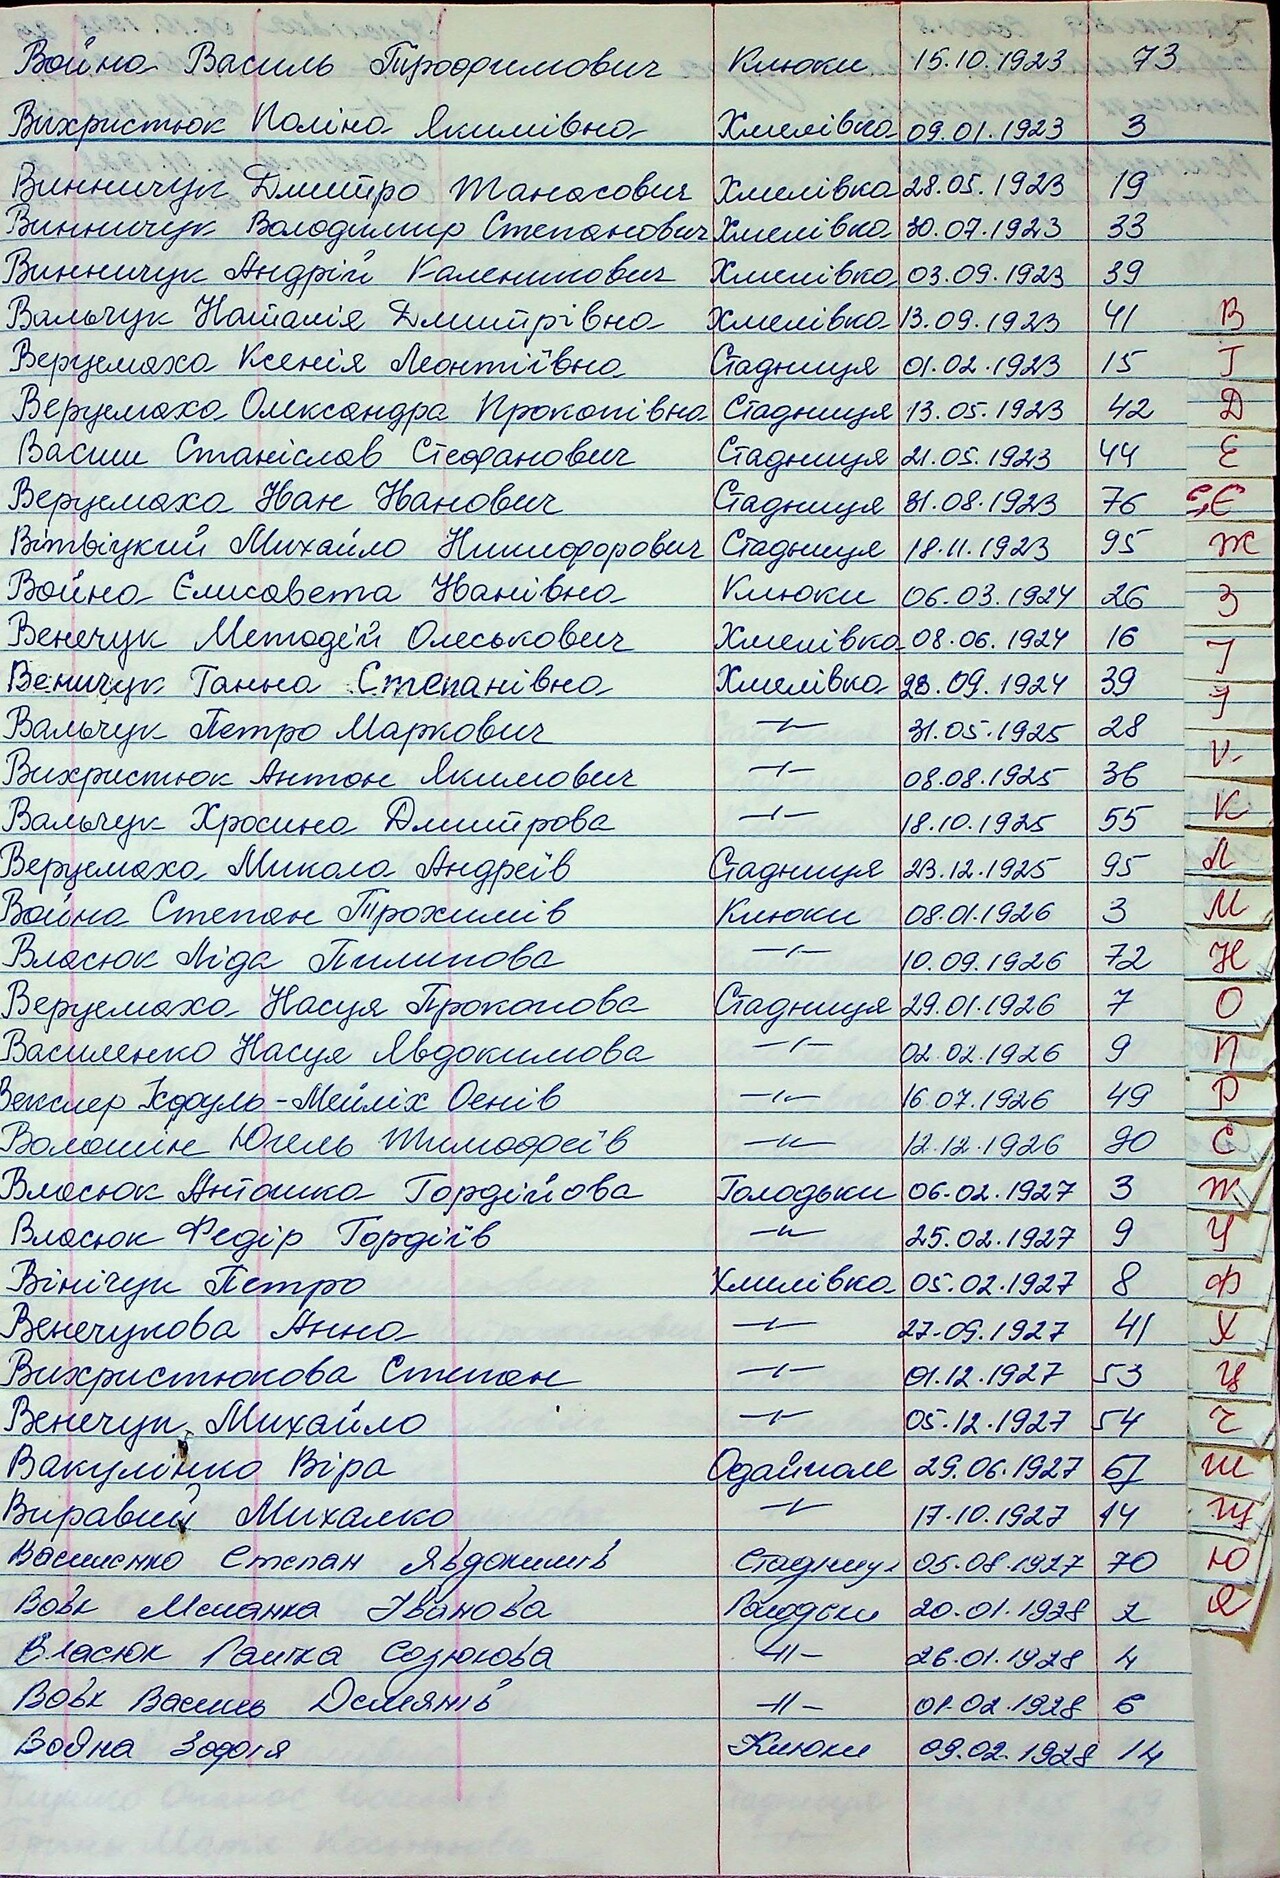 Война Василь Трофимович Клюки 15.10.1923 73
Вихристюк Поліна Якимівна Хмелівка 09.01.1923 3
Винничук Дмитро Танасович Хмелівка 28.05.1923 19
Винничук Володимир Степанович Хмелівка 30.07.1923 33
Винничук Андрій Каленикович Хмелівка 03.09.1923 39
Вальчук Наталія Дмитрівна Хмелівка 13.09.1923 41 В
Верцемаха Ксенія Леонтіївна Стадниця 01.02.1923 15 Г
Верцемаха Олександра Прокопівна Стадниця 13.05.1923 42 Д
Васиш Станіслав Стефанович Стадниця 21.05.1923 44 Е
Верцемаха Іван Іванович Стадниця 31.08.1923 76 Є
Михайло Никифорович Стадниця 18.11.1923 95 Ж
Война Єлисавета Іванівна Клюки 06.03.1924 26 З
Венечук Методій Олеськович Хмелівка 08.06.1924 16 І
Веничук Ганна Степанівна Хмелівка 28.09.1924 39 Ї
Вальчук Петро Маркович -/- 31.05.1925 28
Вихристюк Антон Якимович -/- 08.08.1925 36
Вальчук Хросина Дмитрова -/- 18.10.1925 55 К
Верцемаха Микола Андреїв Стадниця 23.12.1925 95 Л
Война Степан Трохимів Клюки 08.01.1926 3 М
Власюк Ліда Пилипова -/- 10.09.1926 72 Н
Верцемаха Насця Прокопова Стадниця 29.01.1926 7 О
Василенко Насця Явдокимова -/- 02.02.1926 9 П
Векслер -Мейліх Оснів -/- 16.07.1926 49 Р
Волошин Югель Тимофеїв -//- 12.12.1926 90 С
Власюк Антошка Гордійова Голодьки 06.02.1927 3 Т
Власюк Федір Гордіїв -//- 25.02.1927 9 У
Вінічук Петро Хмелівка 05.02.1927 8 Ф
Венечукова Анна -/- 27.09.1927 41 Х
Вихристюкова Степан -/- 01.12.1927 53 Ц
Венечук Михайло -/- 05.12.1927 54 Ч
Вакулінко Віра Одайполе 29.06.1927 67 Ш
Виравий Михалко -/- 17.10.1927 14 Щ
Василенко Степан Явдокимів Стадниця 05.08.1927 70 Ю
Вовк Меланка Іванова Голодьки 20.01.1928 2 Я
Власюк Галтка Созюкова -//- 26.01.1928 4
Вовк Василь Демянів -//- 01.02.1928 6
Война Зофія Клюки 09.02.1928 14